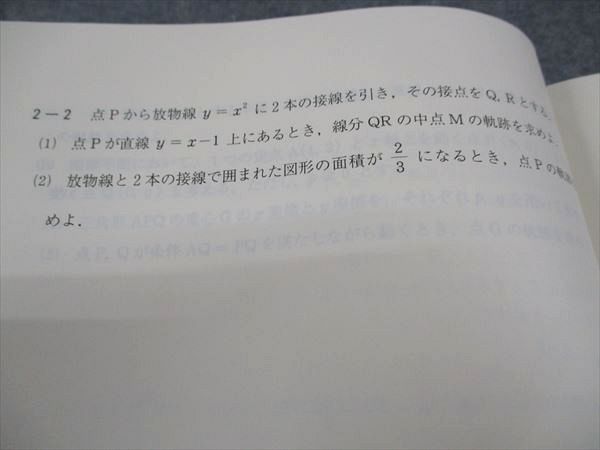 2－2 点Pから放物線 y = x² に2本の接線を引き，その接点をQ, Rとする．
(1) 点Pが直線 y = x－1 上にあるとき，線分QRの中点Mの軌跡を求めよ．
(2) 放物線と2本の接線で囲まれた図形の面積が 2/3 になるとき，点Pの軌
めよ．